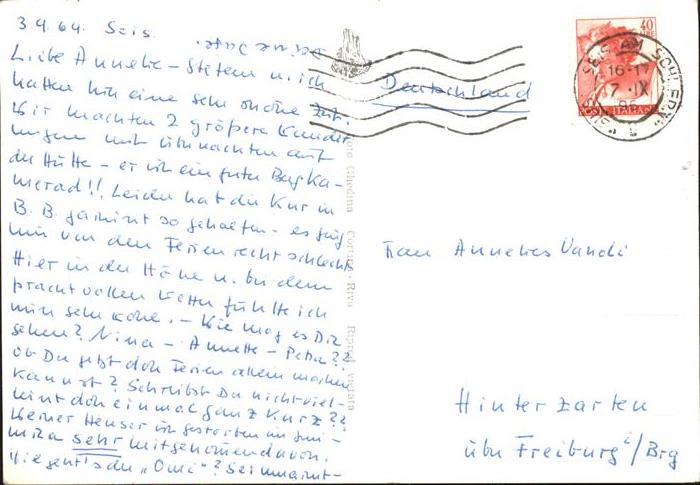 3.9.64. Seis.
Liebe Anneke - Stefan u. ich
hatten hir eine sehr schöne Zeit.
Wir machten 2 größere Wander
ungen mit übernachten auf
der Hütte - er ist ein guter Bergka-
merad!! Leider hat die Kur in
B. B. garnicht so geholfen - es ging
mir vor den Ferien recht schlecht.
Hier in der Höhe u. bei dem
prachtvollen Wetter fühlte ich
mich sehr wohl. - Wie mag es Dir
gehen? Nina - Annette - Petra??
ob Du jetzt doch Ferien allein machen
kannst? Schreibst Du nicht viel-
leicht doch einmal ganz kurz??
Werner Heuser ist gestorben im Juni -
sehr mitgenommen davon.
Wie geht's der "Omi"? Sei umarmt -
Deutschland
40
SEIS AM SCHLERN
16-17
7.IX
Frau Annelies Vandi
Hinterzarten
über Freiburg i/Brg